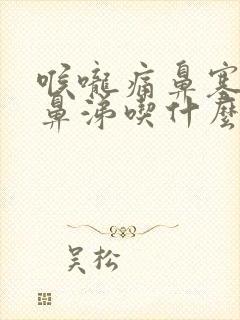 喉嚨痛鼻塞
鼻涕喫什麼
吴松